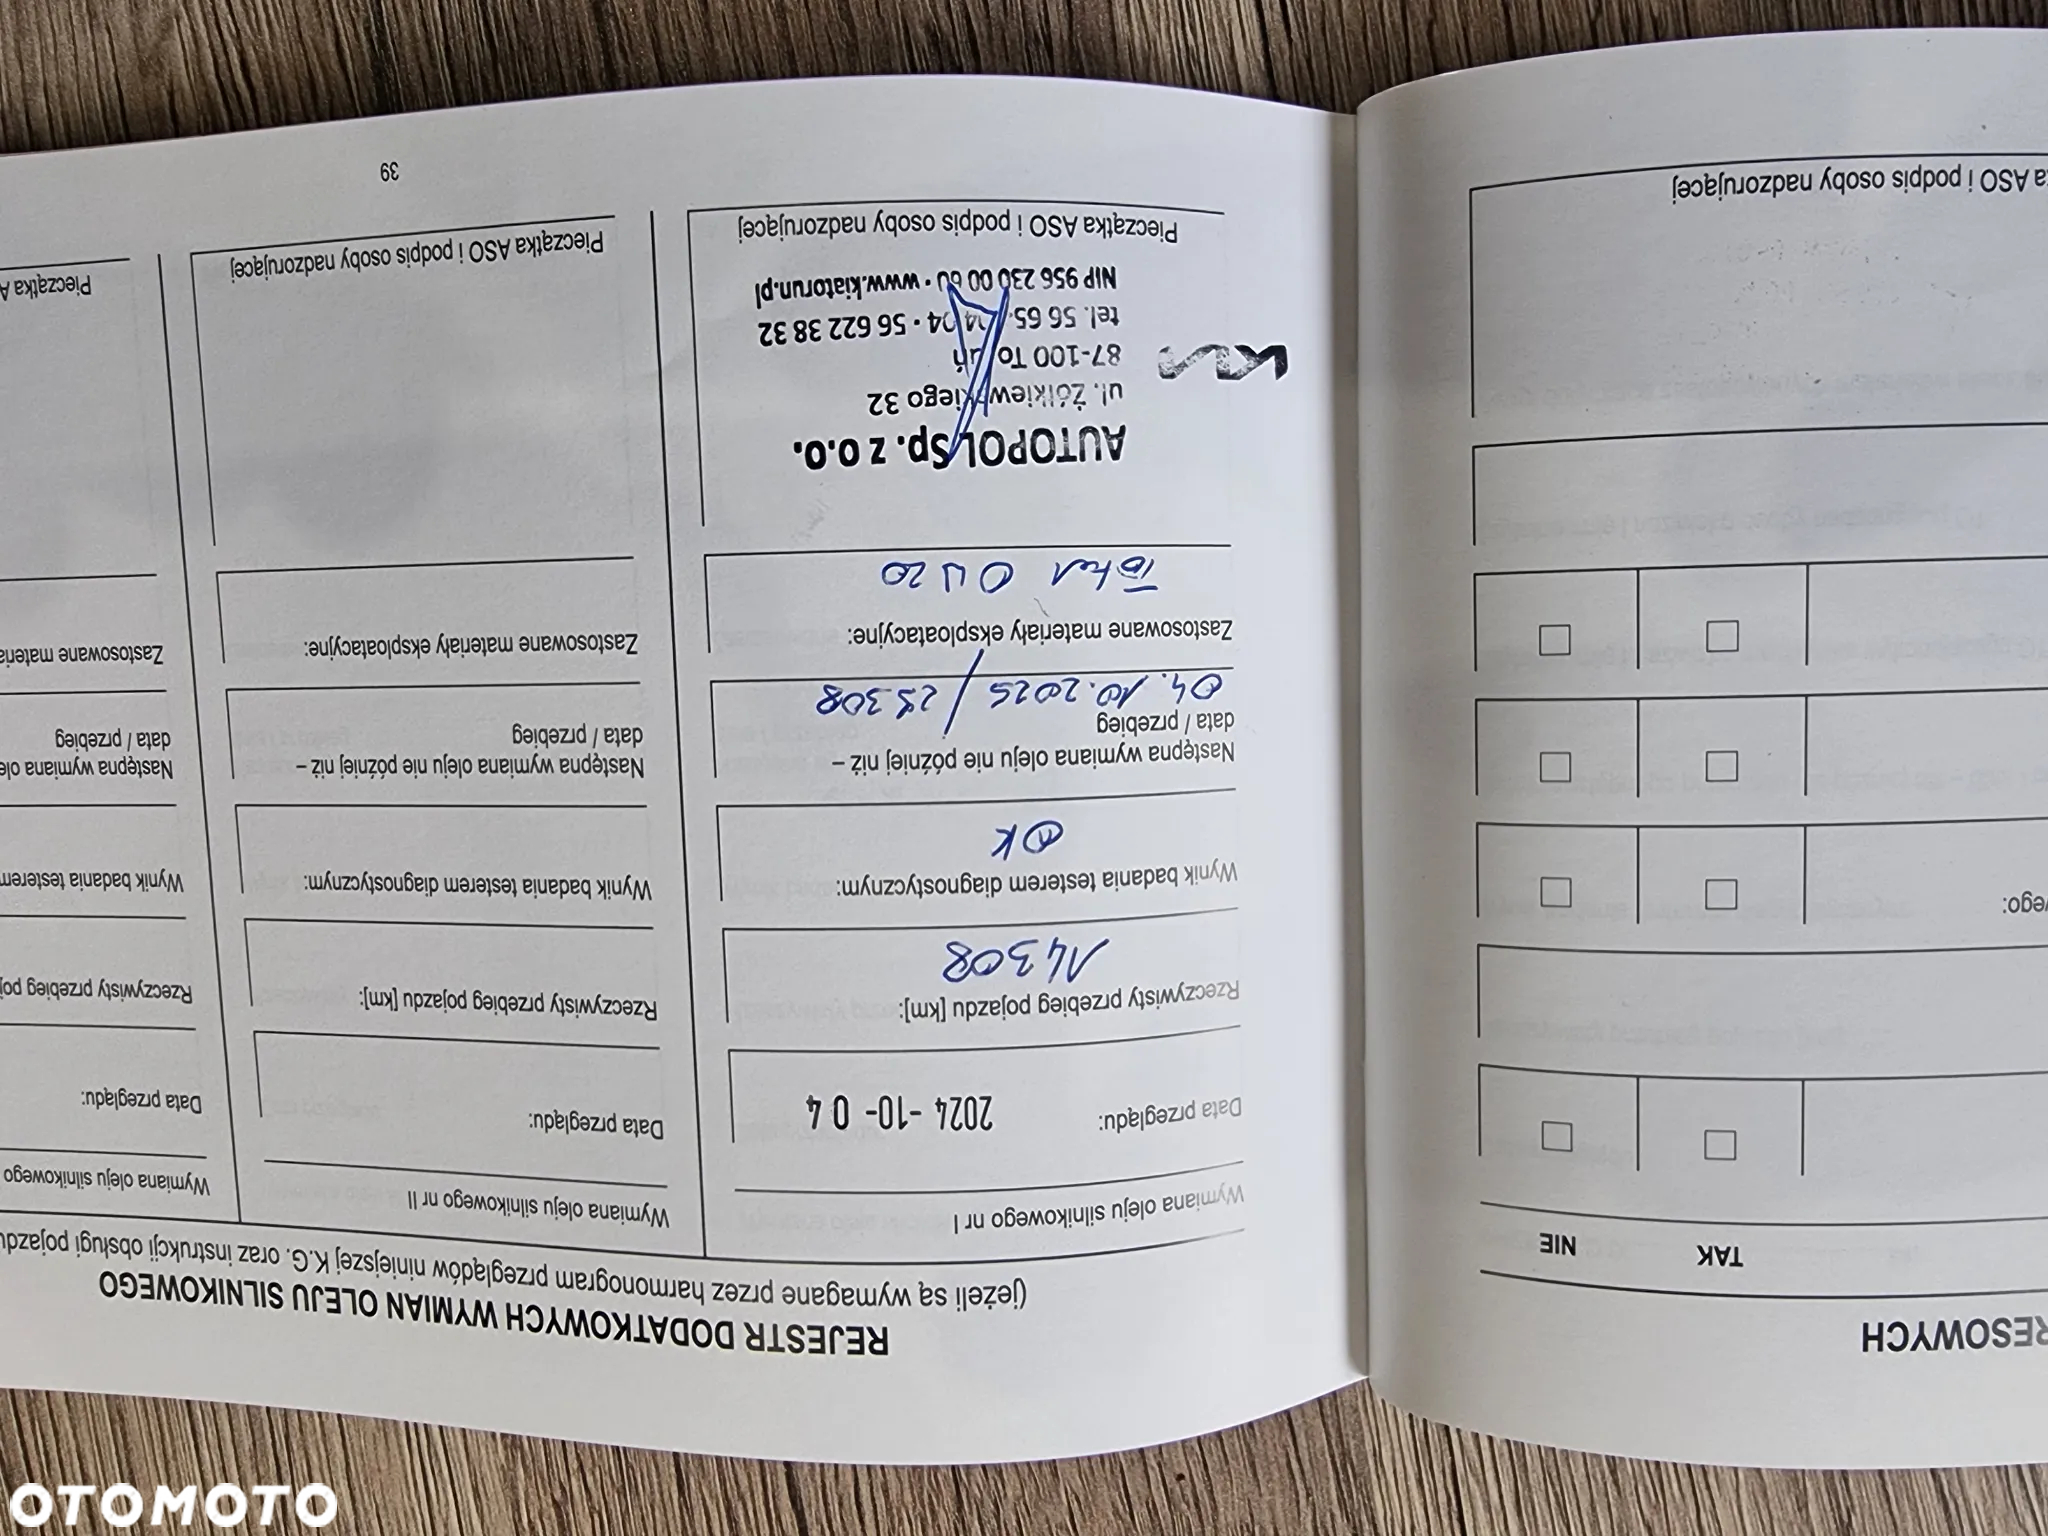 RESOWYCH
TAK NIE
wego:
ka ASO i podpis osoby nadzorującej
REJESTR DODATKOWYCH WYMIAN OLEJU SILNIKOWEGO
(jeżeli są wymagane przez harmonogram przeglądów niniejszej K.G. oraz instrukcji obsługi pojazdu
Wymiana oleju silnikowego nr I
Data przeglądu: 2024 -10- 0 4
Rzeczywisty przebieg pojazdu [km]:
14308
Wynik badania testerem diagnostycznym:
OK
Następna wymiana oleju nie później niż –
data / przebieg
04.10.2025 / 29308
Zastosowane materiały eksploatacyjne:
Total 0W20
AUTOPOL Sp. z o.o.
ul. Żółkiewskiego 32
87-100 Toruń
tel. 56 65 04 • 56 622 38 32
NIP 956 230 00 60 • www.kiatorun.pl
KIA
Pieczątka ASO i podpis osoby nadzorującej
Wymiana oleju silnikowego nr II
Data przeglądu:
Rzeczywisty przebieg pojazdu [km]:
Wynik badania testerem diagnostycznym:
Następna wymiana oleju nie później niż –
data / przebieg
Zastosowane materiały eksploatacyjne:
Pieczątka ASO i podpis osoby nadzorującej
Wymiana oleju silnikowego
Data przeglądu:
Rzeczywisty przebieg poj
Wynik badania testerem
Następna wymiana ole
data / przebieg
Zastosowane materia
Pieczątka A
39
OTOMOTO